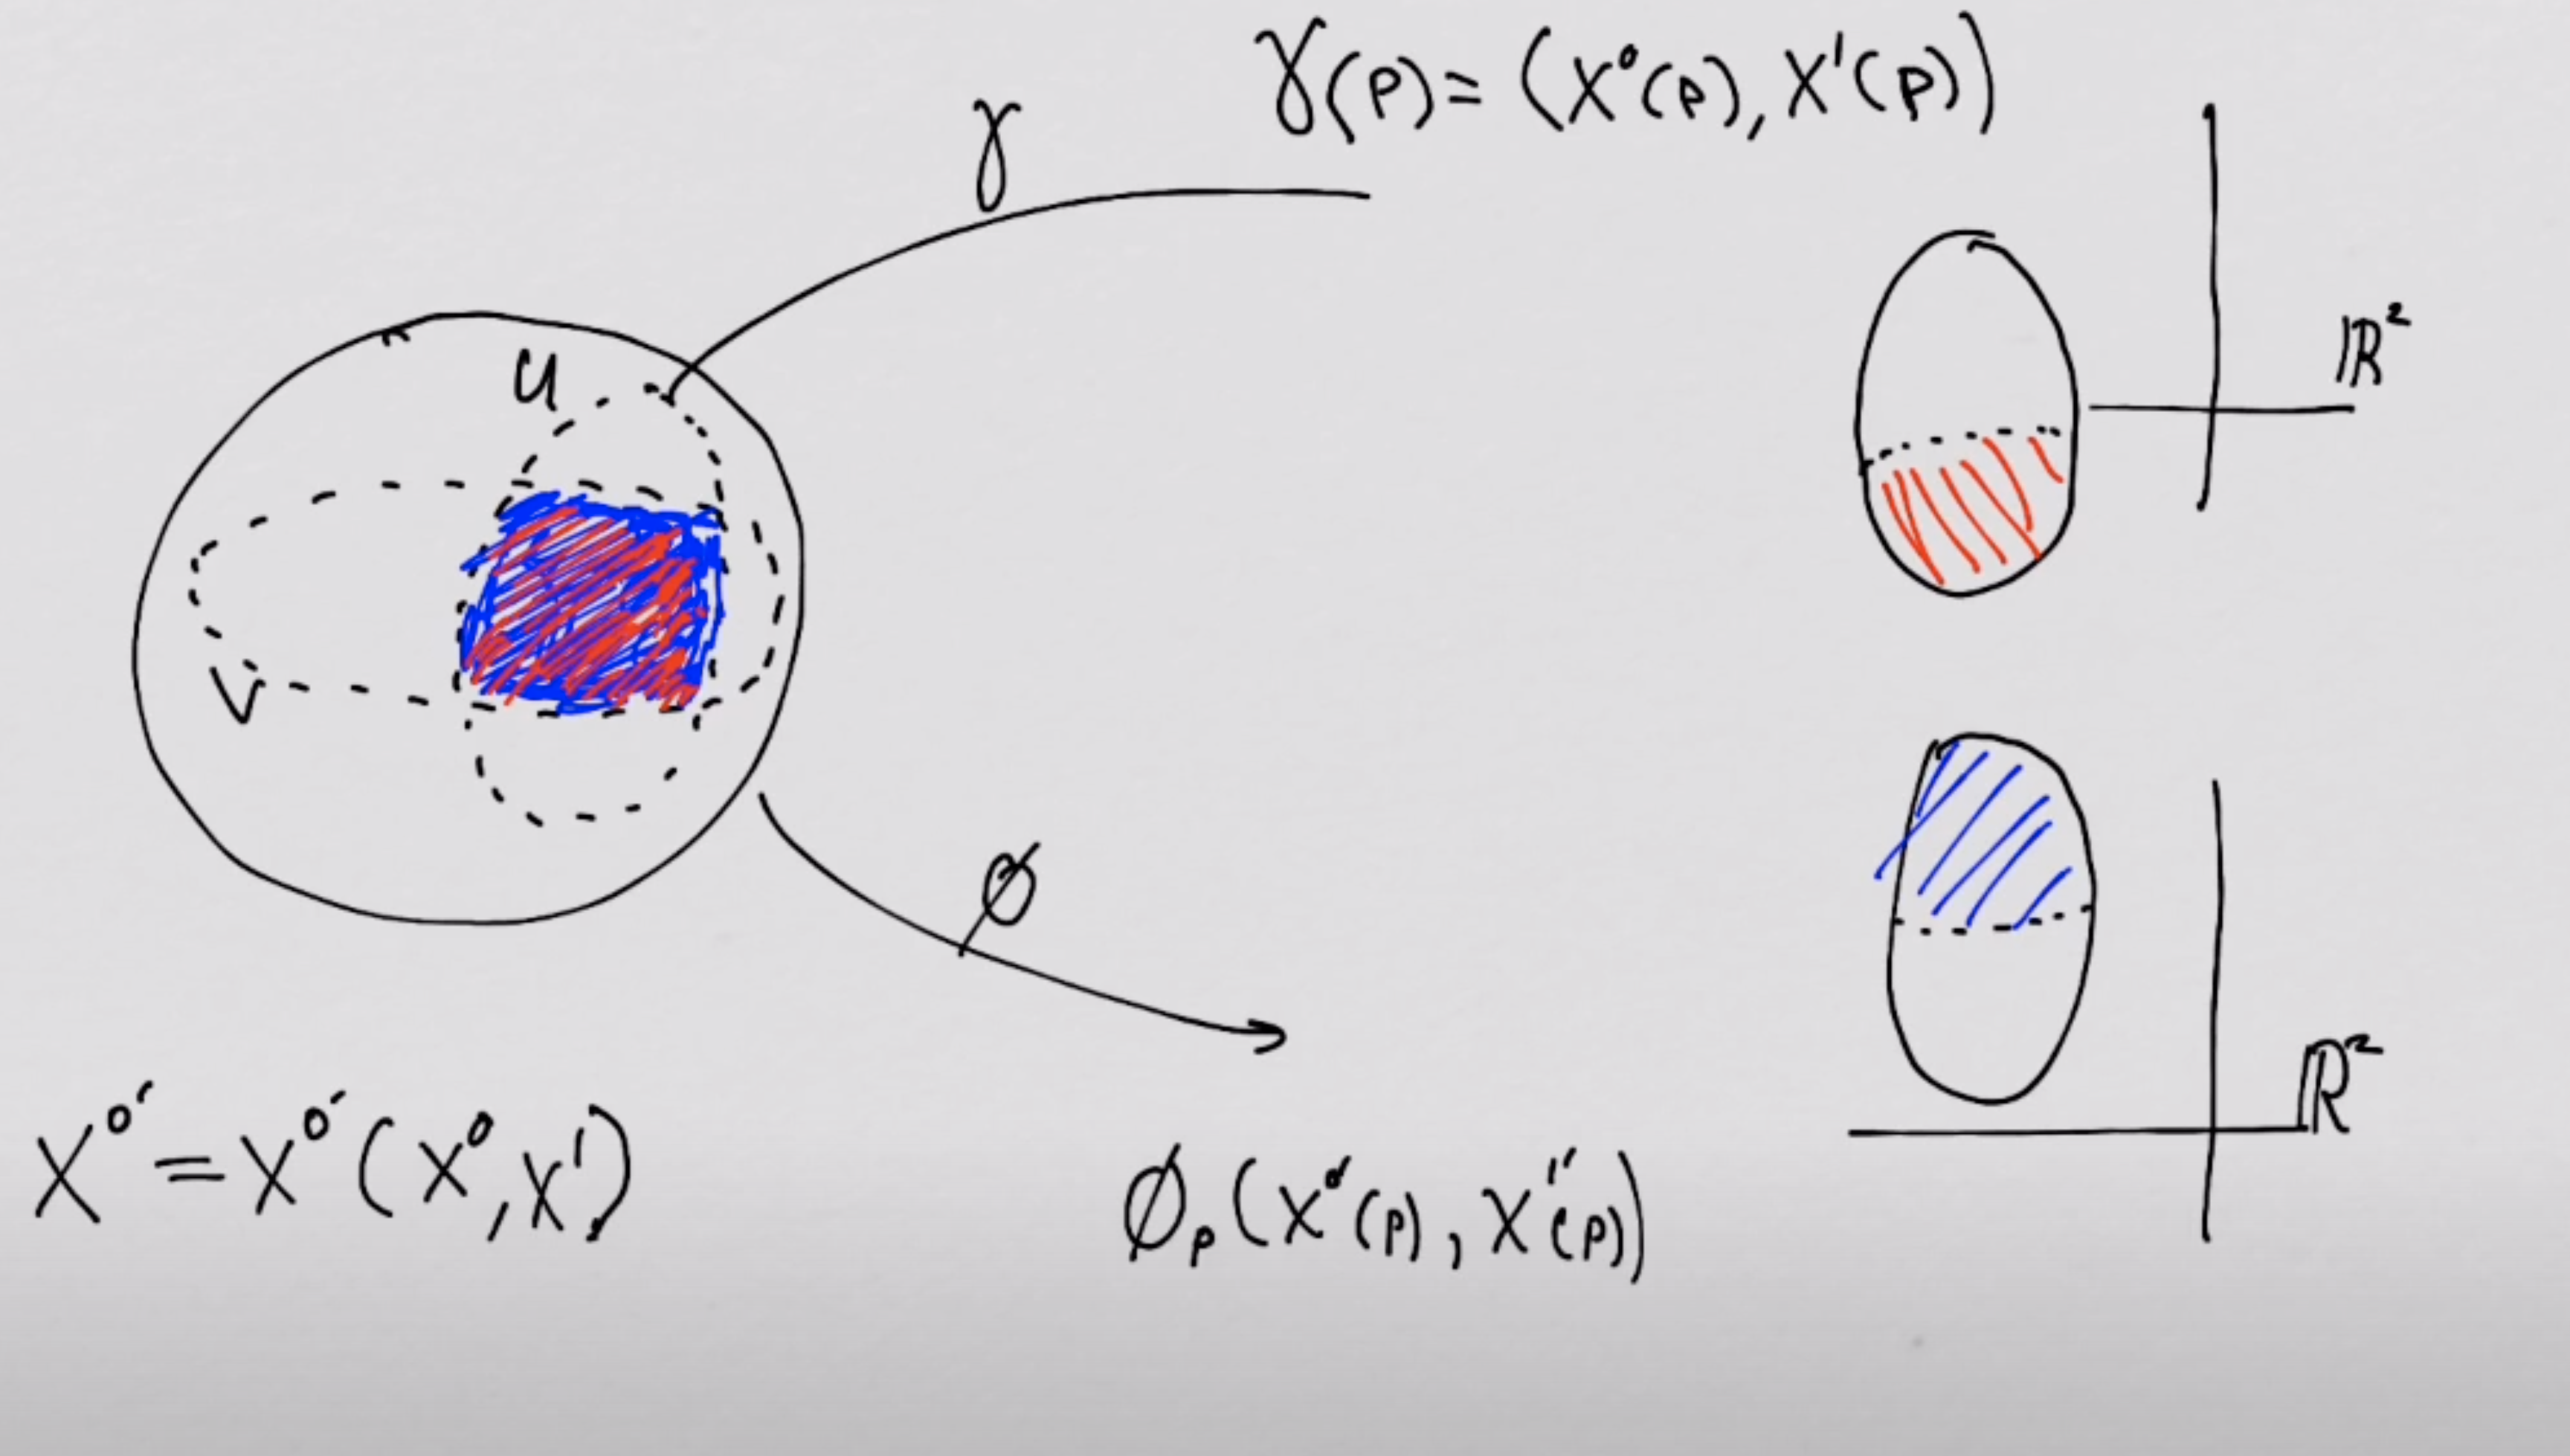 γ(p)= (x⁰(p), x¹(p))
γ
ℝ²
U
V
ϕ
ℝ²
x⁰′=x⁰′(x⁰,x¹)
ϕₚ(x⁰′(p), x¹′(p))